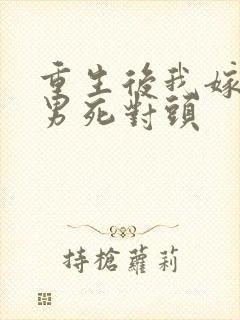 重生後我嫁
男死對頭
持槍蘿莉